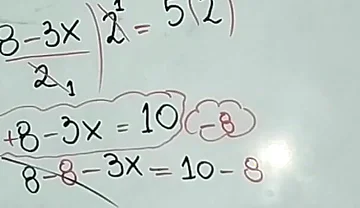 8-3x/2 1) 2 1 = 5(2)
+8-3x = 10 -8
8-8-3x = 10-8